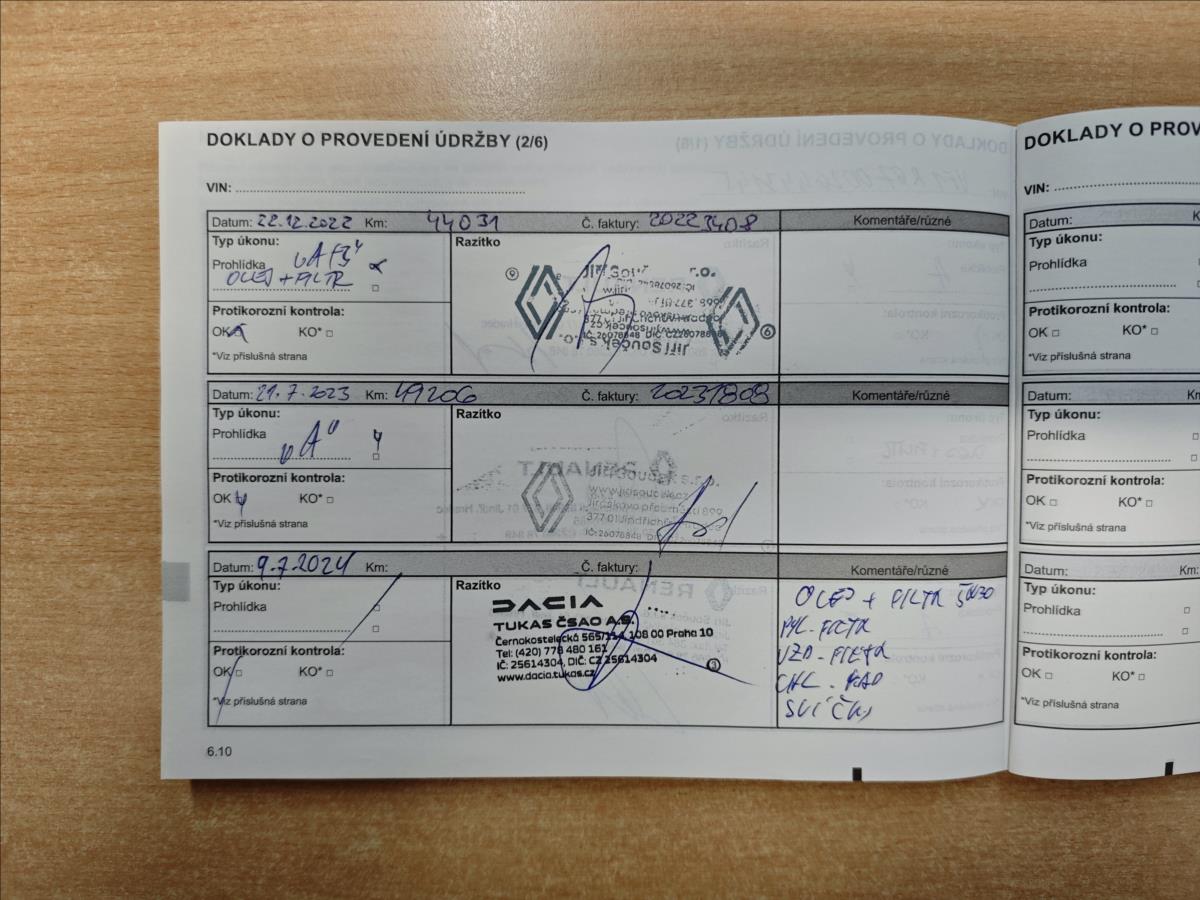 DOKLADY O PROVEDENÍ ÚDRŽBY (2/6)
VIN:
Datum: 22.12.2022 Km: 44031 Č. faktury: 20223408 Komentáře/různé
Typ úkonu:
Razítko
Prohlídka
OLEJ + FILTR
Protikorozní kontrola:
OK KO*
*Viz příslušná strana
Jiří Souček s.r.o.
Datum: 21.7.2023 Km: 49206 Č. faktury: 20231808 Komentáře/různé
Typ úkonu:
Razítko
Prohlídka "A"
Protikorozní kontrola:
OK KO*
*Viz příslušná strana
www.jirisoucek.cz
IČ: 26078848
Datum: 9.7.2024 Km: Č. faktury: Komentáře/různé
Typ úkonu:
Razítko
Prohlídka
Protikorozní kontrola:
OK KO*
*Viz příslušná strana
DACIA
TUKAS ČSAO A.S.
Černokostelecká 565/114, 108 00 Praha 10
Tel: (420) 778 480 161
IČ: 25614304, DIČ: CZ 25614304
www.dacia.tukas.cz
3
OLEJ + FILTR 5W30
PYL. FILTR
VZD. FILTR
CHL. KAP
SVÍČKY
6.10
DOKLADY O PROV
VIN:
Datum: K
Typ úkonu:
Prohlídka
Protikorozní kontrola:
OK KO*
*Viz příslušná strana
Datum: Kn
Typ úkonu:
Prohlídka
Protikorozní kontrola:
OK KO*
*Viz příslušná strana
Datum: Km:
Typ úkonu:
Prohlídka
Protikorozní kontrola:
OK KO*
*Viz příslušná strana